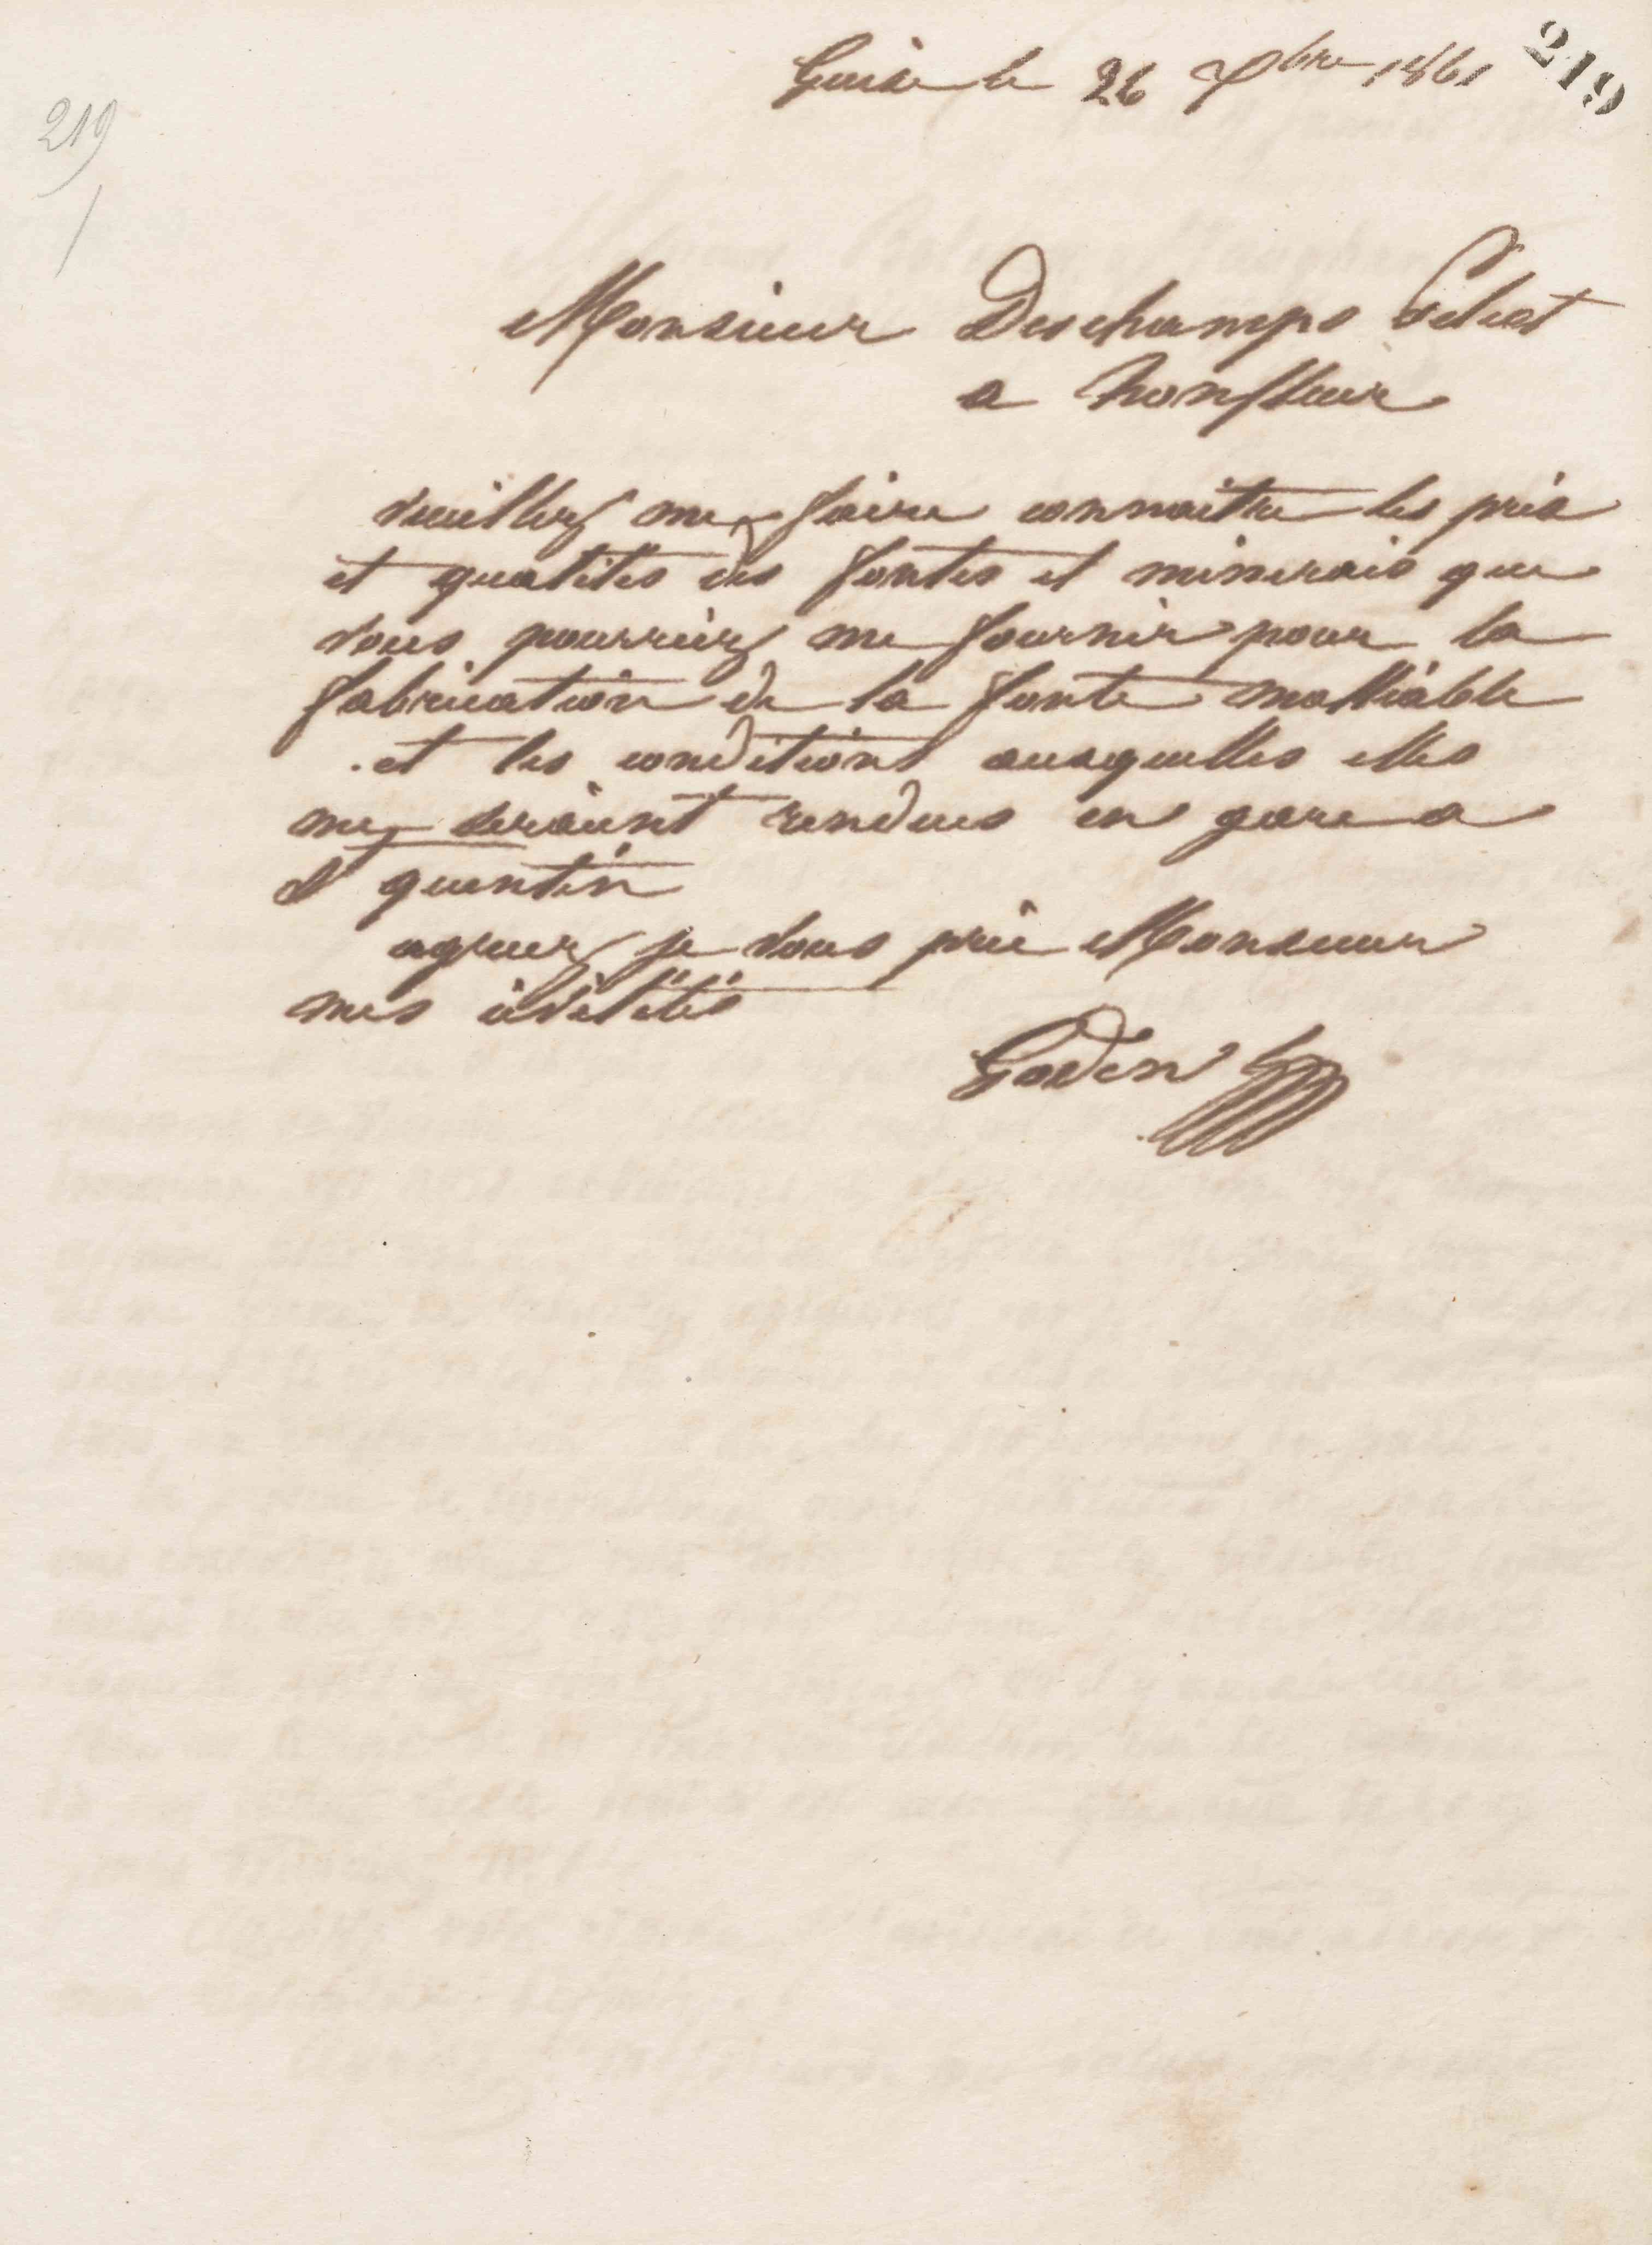 Guise le 26 Xbre 1861 219
219
Monsieur Deschamps
a honfleur
veuillez me faire connaitre les prix
et qualités des fontes et minerais que
vous pourriez me fournir pour la
fabrication de la fonte malliable
et les conditions auxquelles elles
me seraient rendues en gare a
St quentin
agreez je vous prie Monsieur
mes civilités
Godin